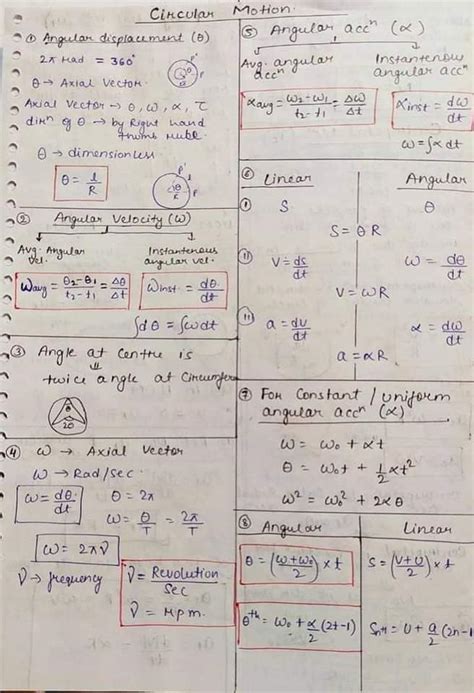 Circular Motion.
① Angular displacement (θ)
2π rad = 360°
θ → Axial Vector.
Axial Vector → θ, ω, α, τ
dirⁿ of θ → by Right hand
thumb rule.
θ → dimensionless
θ = l/R
② Angular Velocity (ω)
Avg. Angular vel.
Instantenous angular vel.
ωavg = θ2-θ1/t2-t1 = Δθ/Δt
ωinst. = dθ/dt
∫dθ = ∫ωdt
③ Angle at Centre is
twice angle at Circumfere
θ
2θ
④ ω → Axial Vector
ω → Rad/Sec.
ω = dθ/dt
θ = 2π
ω = θ/T = 2π/T
ω = 2πν
ν → frequency
ν = Revolution/Sec
ν = rpm.
⑤ Angular accⁿ (α)
Avg. angular accⁿ
Instantenous angular accⁿ
αavg = ω2-ω1/t2-t1 = Δω/Δt
αinst = dω/dt
ω = ∫α dt
⑥ Linear Angular
① S θ
S = θR
⑪ V = ds/dt ω = dθ/dt
V = ωR
⑪ a = dv/dt α = dω/dt
a = αR
⑦ For Constant / uniform
angular accⁿ (α)
ω = ω0 + αt
θ = ω0t + 1/2 αt²
ω² = ω0² + 2αθ
⑧ Angular Linear
θ = (ω+ω0/2) × t S = (V+U/2) × t
θth = ω0 + α/2 (2t-1) Snth = U + a/2 (2n-1